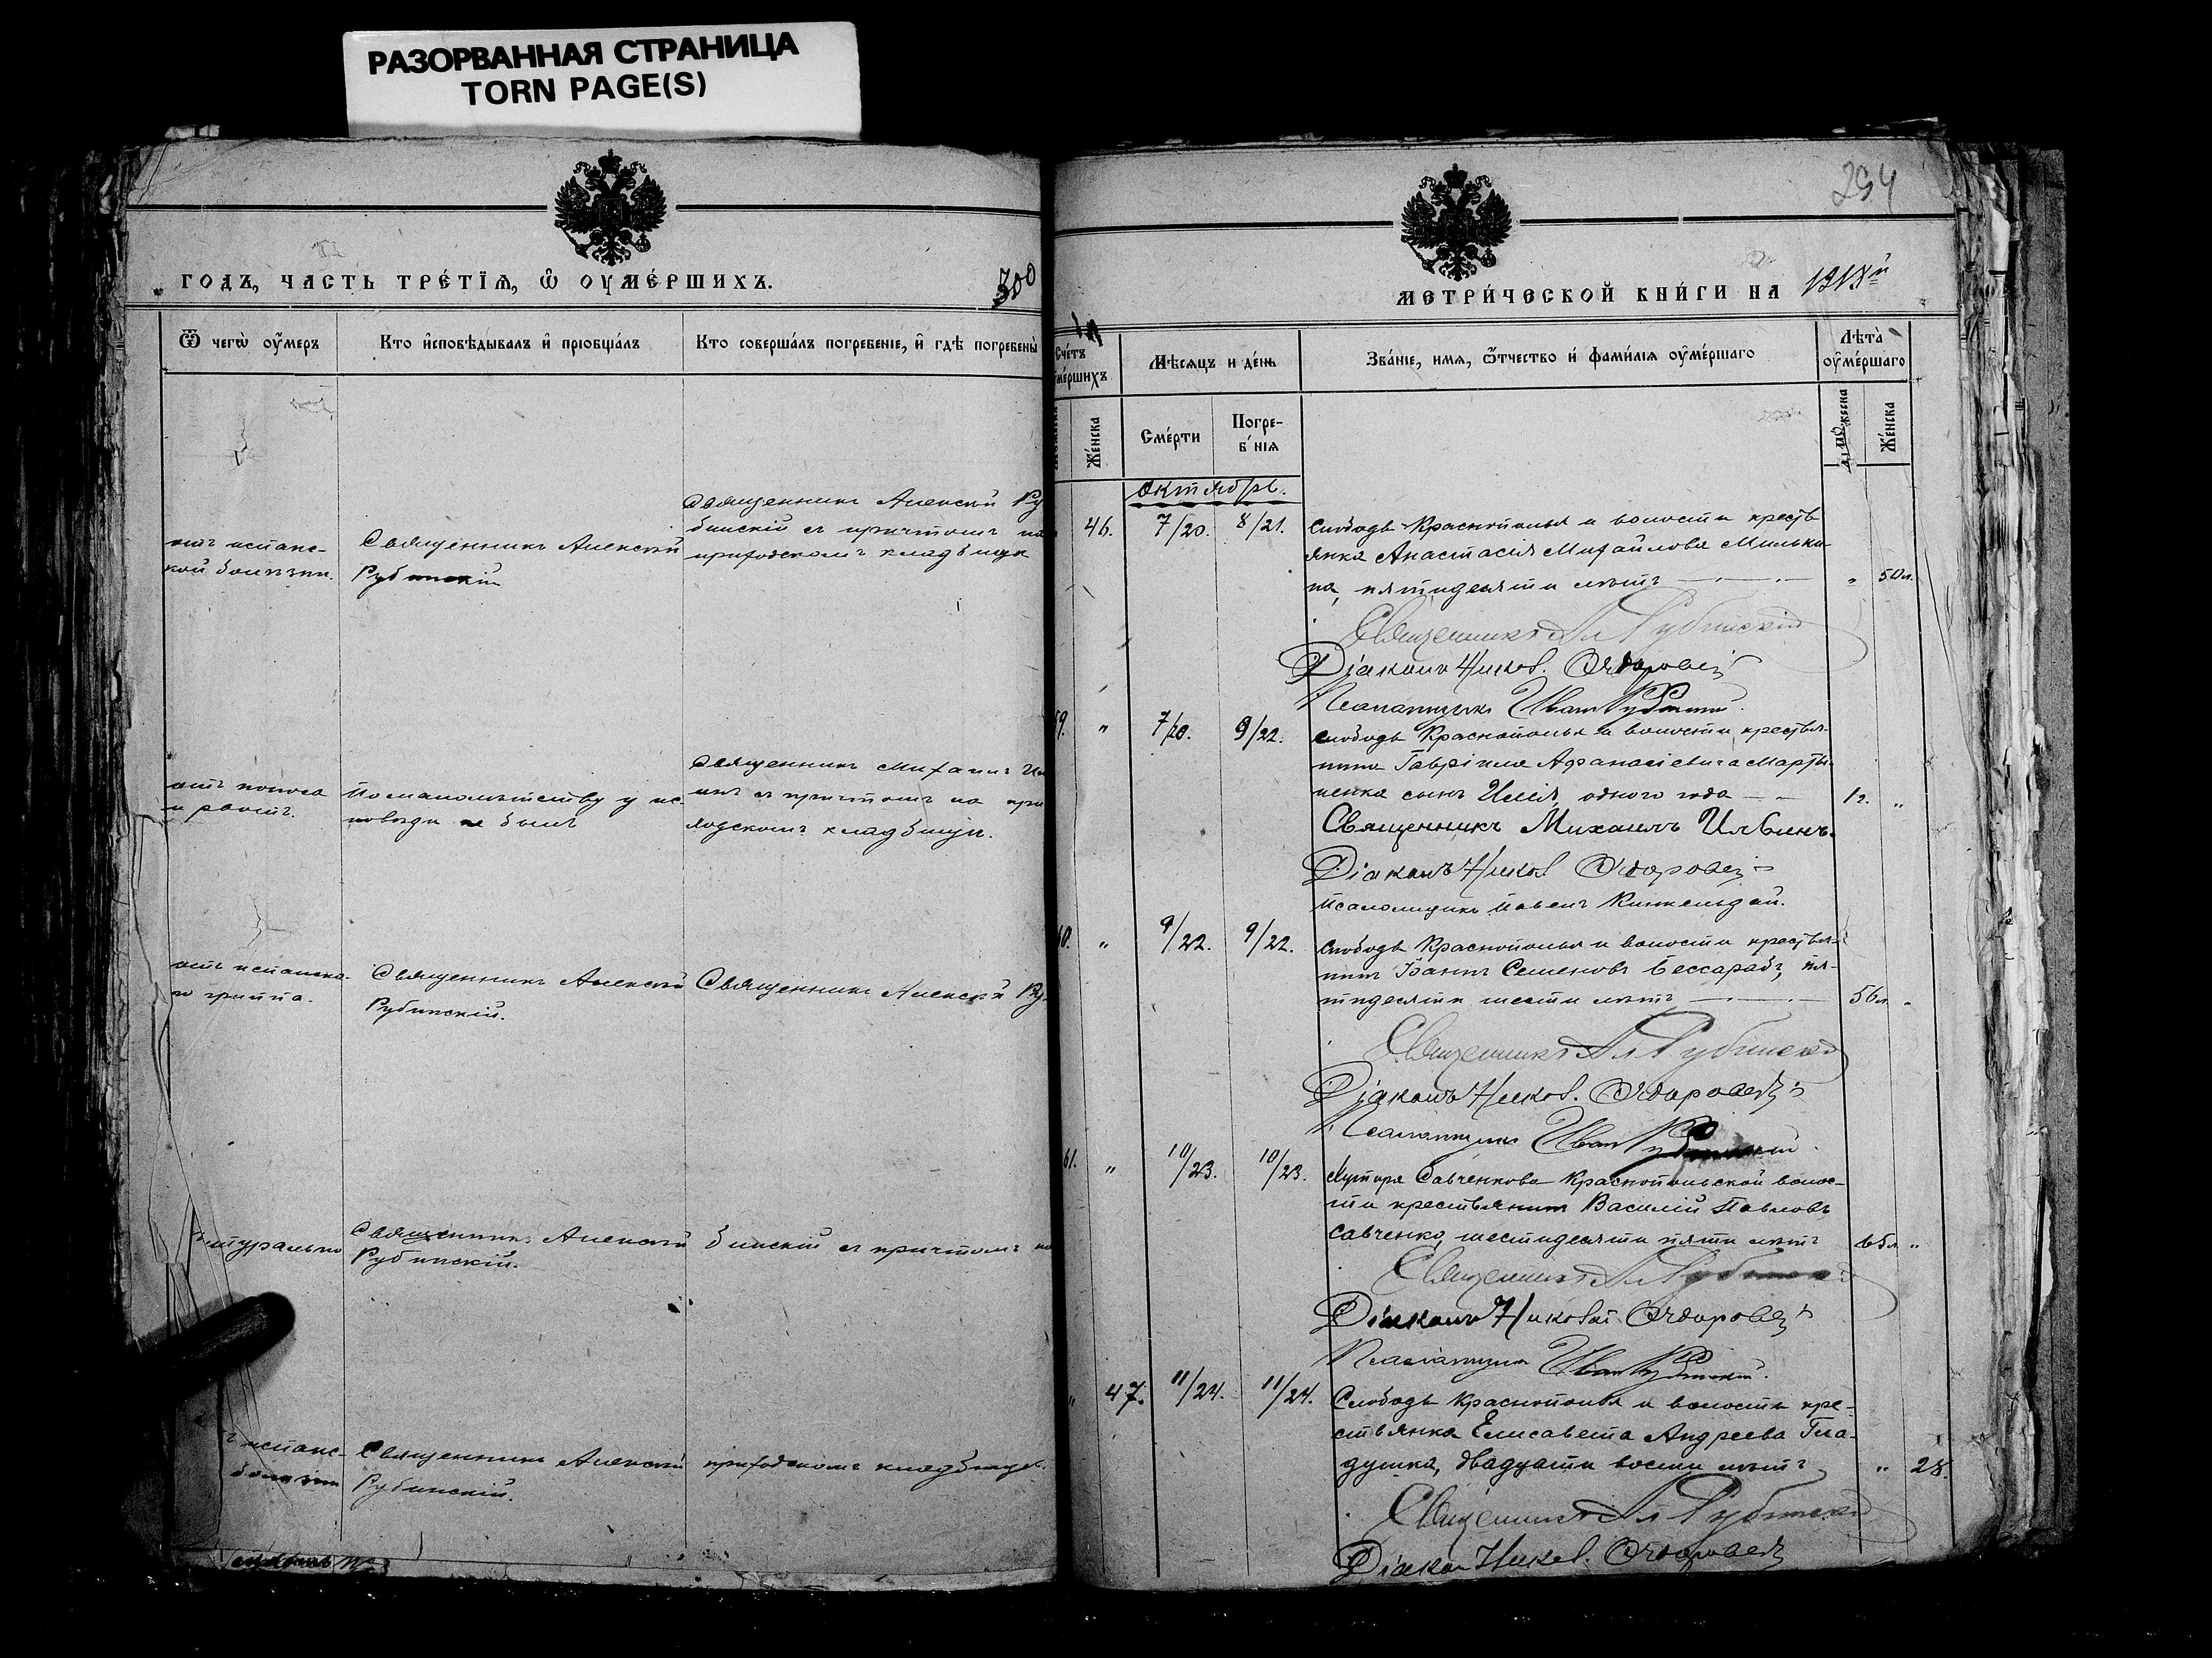 РАЗОРВАННАЯ СТРАНИЦА
TORN PAGE(S)
ГОДЪ, ЧАСТЬ ТРЕ́ТІѦ, Ѽ ОУМЕ́РШИХЪ.
300
Ѿ чегѡ̀ оу҆́меръ
Кто и҆сповѣ́дывалъ и҆ прїобща́лъ
Кто соверша́лъ погребе́нїе, и҆ гдѣ̀ погребены̀
Священникъ Алексій Ру
бинскій съ причтомъ на
приходскомъ кладбищѣ
отъ испанс-
кой болѣзни.
Священникъ Алексій
Рубинскій
Священникъ Михаилъ Иль
инъ съ причтомъ на при
ходскомъ кладбищѣ.
отъ поноса
и рвотъ.
По малолѣтству у ис-
повѣди не былъ
отъ испанска-
го гриппа.
Священникъ Алексій
Рубинскій.
Священникъ Алексій Ру-
натурально
Священникъ Алексій
Рубинскій.
бинскій съ причтомъ на
испанс-
болѣзни
Священникъ Алексій
Рубинскій.
приходскомъ кладбищѣ.
294
МЕТРИ́ЧЕСКОЙ КНИ́ГИ НА 1918й
Сче́тъ
оуме́ршихъ
Мѣ́сяцъ и де́нь
Зва́нїе, имѧ, ѻ҆́тчество и҆ фами́лїѧ оу҆ме́ршаго
Лѣта̀
оу҆ме́ршаго
Же́нска
Сме́рти
Погре-
бнїѧ
Же́нска
Октябрь.
46. 7/20. 8/21. Слободы Краснополья и волости кресть
янка Анастасія Михайлова Милькина
на, пятидесяти лѣтъ " 50 л.
Священникъ Ал Рубинскій
Діаконъ Никол.
Псаломщикъ Иванъ Рубинскій.
59. " 7/20. 9/22. Слободы Краснополья и волости крестья-
нина Гавріила Афанасіевича Марты-
ненка сынъ Илія, одного года 1 г. "
Священникъ Михаилъ Ильинъ.
Діаконъ Никол
Псаломщикъ Павелъ
60. " 9/22. 9/22. Слободы Краснополья и волости крестья-
нинъ Іоаннъ Семеновъ Бессарабъ, пя-
тидесяти шести лѣтъ 56 л. "
Священникъ Ал Рубинскій
Діаконъ Никол.
Псаломщикъ Иванъ Рубинскій.
61. " 10/23. 10/23. Хутора Савченкова Краснопольской волос-
ти крестьянинъ Василій Павловъ
Савченко, шестидесяти пяти лѣтъ 65 л. "
Священникъ Ал Рубинскій
Діаконъ Николай
Псаломщикъ Иванъ Рубинскій.
" 47. 11/24. 11/24. Слободы Краснополья и волости кре-
стьянка Елисавета Андреева Гла-
душка, двадцати восьми лѣтъ " 28.
Священникъ Ал Рубинскій
Діакон Никол.